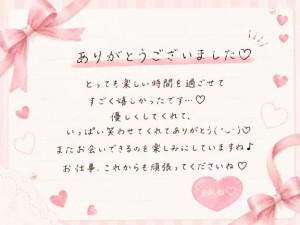 ありがとうございました♡
とっても楽しい時間を過ごせて
すごく嬉しかったです…♡
優しくしてくれて、
いっぱい笑わせてくれてありがとう(´ᵕ`)♡
またお会いできるのを楽しみにしていますね♪
お仕事、これからも頑張ってくださいね♡